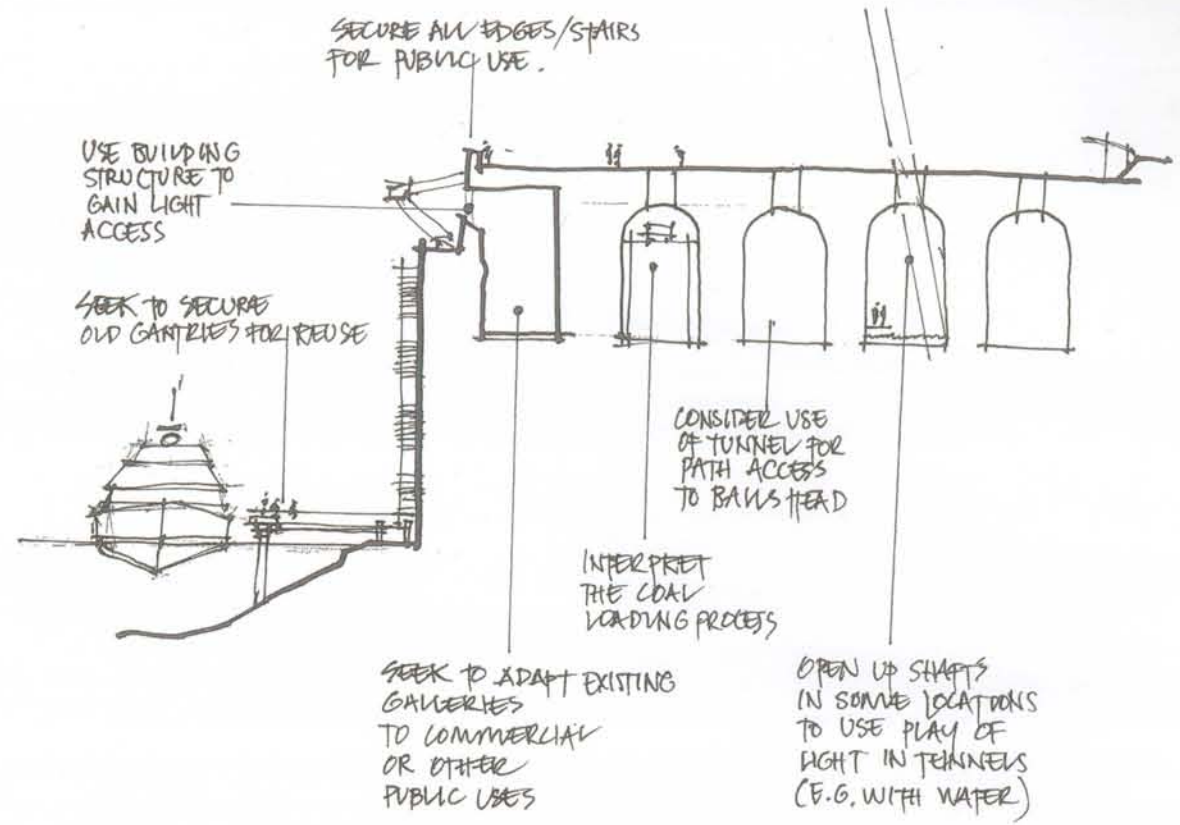 SECURE ALL EDGES/STAIRS
FOR PUBLIC USE.
USE BUILDING
STRUCTURE TO
GAIN LIGHT
ACCESS
SEEK TO SECURE
OLD GANTRIES FOR REUSE
CONSIDER USE
OF TUNNEL FOR
PATH ACCESS
TO BALLS HEAD
INTERPRET
THE COAL
LOADING PROCESS
SEEK TO ADAPT EXISTING
GALLERIES
TO COMMERCIAL
OR OTHER
PUBLIC USES
OPEN UP SHAFTS
IN SOME LOCATIONS
TO USE PLAY OF
LIGHT IN TUNNELS
(E.G. WITH WATER)